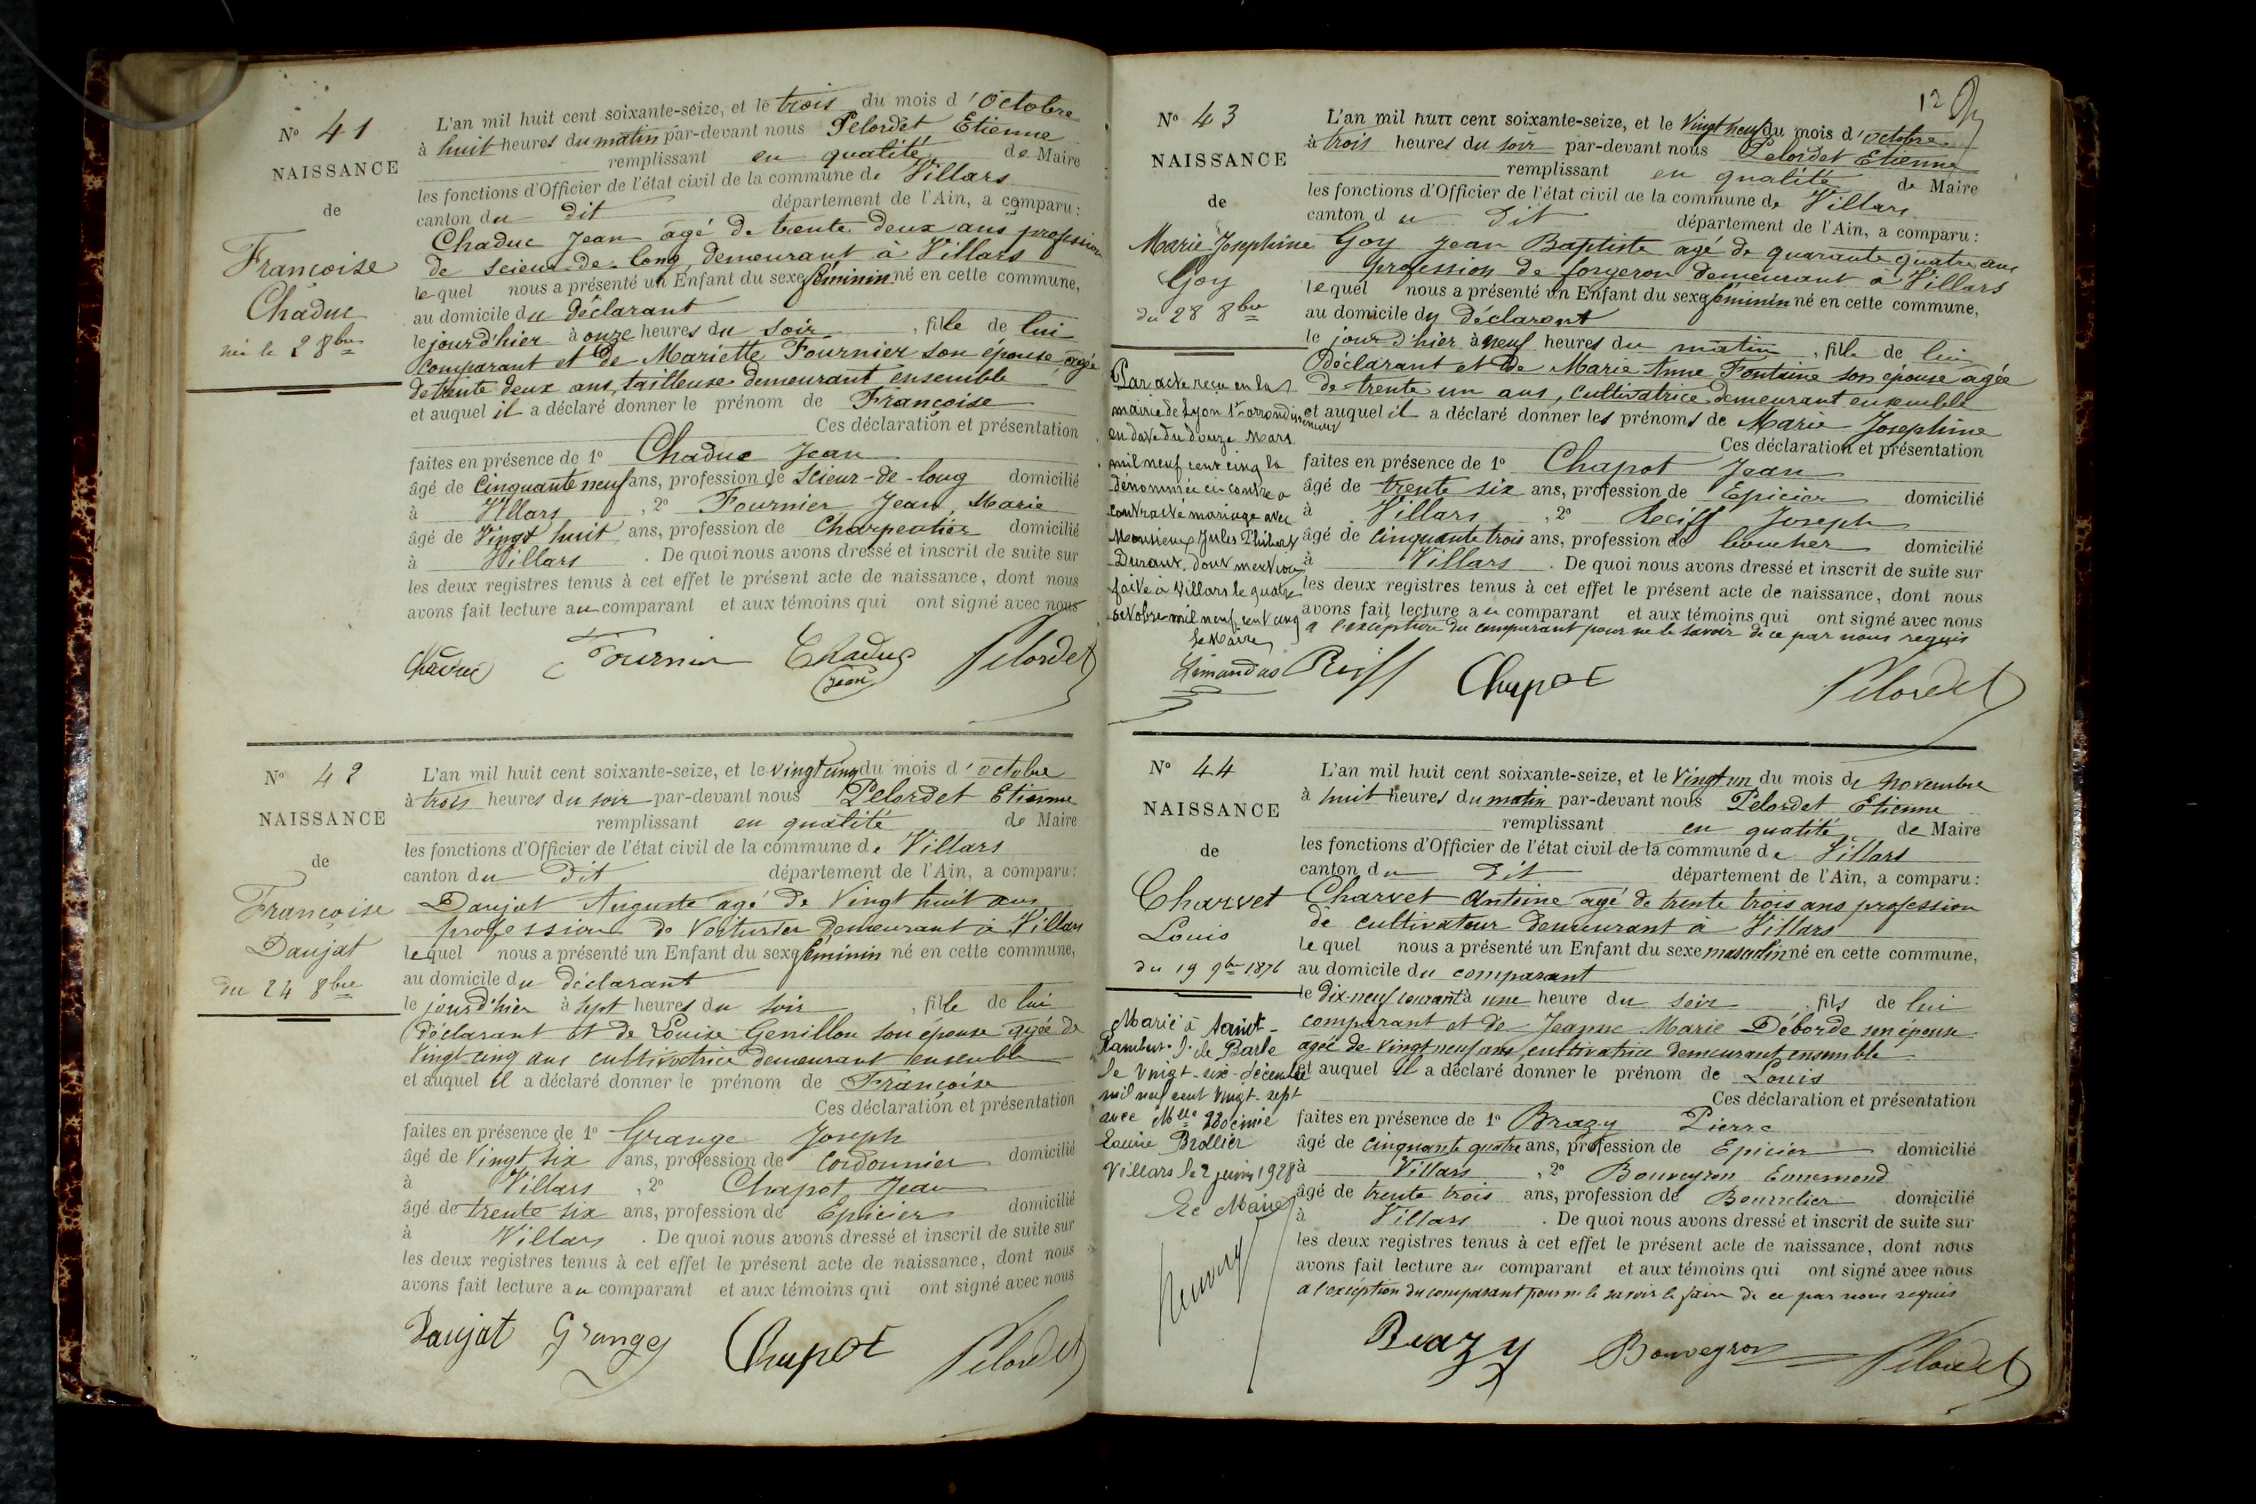 N° 41
NAISSANCE
de
Françoise
Chaduc
née le 2 8bre
L'an mil huit cent soixante-seize, et le trois du mois d'Octobre
à huit heures du matin par-devant nous Pelordet Etienne
remplissant en qualité de Maire
les fonctions d'Officier de l'état civil de la commune de Villars
canton du dit département de l'Ain, a comparu:
Chaduc Jean agé de trente deux ans profession
de scieur-de-long, demeurant à Villars
lequel nous a présenté un Enfant du sexe féminin né en cette commune,
au domicile du déclarant
le jour d'hier à onze heures du soir, fille de lui
comparant et de Mariette Fournier son épouse, agée
de trente deux ans, tailleuse demeurant ensemble
et auquel il a déclaré donner le prénom de Françoise
Ces déclaration et présentation
faites en présence de 1° Chaduc Jean
âgé de Cinquante neuf ans, profession de Scieur-de-long domicilié
à Villars, 2° Fournier Jean Marie
âgé de Vingt huit ans, profession de Charpentier domicilié
à Villars. De quoi nous avons dressé et inscrit de suite sur
les deux registres tenus à cet effet le présent acte de naissance, dont nous
avons fait lecture au comparant et aux témoins qui ont signé avec nous
Chaduc Fournier Chaduc Pelordet
Jean
N° 42
NAISSANCE
de
Françoise
Daujat
du 24 8bre
L'an mil huit cent soixante-seize, et le vingt cinq du mois d'octobre
à trois heures du soir par-devant nous Pelordet Etienne
remplissant en qualité de Maire
les fonctions d'Officier de l'état civil de la commune de Villars
canton du dit département de l'Ain, a comparu:
Daujat Auguste agé de Vingt huit ans
profession de Voiturier demeurant à Villars
lequel nous a présenté un Enfant du sexe féminin né en cette commune,
au domicile du déclarant
le jour d'hier à sept heures du soir, fille de lui
déclarant et de Louise Genillon son épouse agée de
Vingt cinq ans cultivatrice demeurant ensemble
et auquel il a déclaré donner le prénom de Françoise
Ces déclaration et présentation
faites en présence de 1° Grange Joseph
âgé de Vingt six ans, profession de cordonnier domicilié
à Villars, 2° Chapot Jean
âgé de trente six ans, profession de Epicier domicilié
à Villars. De quoi nous avons dressé et inscrit de suite sur
les deux registres tenus à cet effet le présent acte de naissance, dont nous
avons fait lecture au comparant et aux témoins qui ont signé avec nous
Daujat Grange Chapot Pelordet
12
N° 43
NAISSANCE
de
Marie Josephine
Goy
du 28 8bre
Par acte reçu en la
mairie de Lyon 1er arrondissement
en date du douze Mars
mil neuf cent cinq la
dénommée ci-contre a
contracté mariage avec
Monsieur Jules Philibert
Durant, dont mention
faite à Villars le quatre
octobre mil neuf cent cinq
Le Maire
L'an mil huit cent soixante-seize, et le Vingt neuf du mois d'octobre
à trois heures du soir par-devant nous Pelordet Etienne
remplissant en qualité de Maire
les fonctions d'Officier de l'état civil de la commune de Villars
canton du dit département de l'Ain, a comparu:
Goy Jean Baptiste agé de quarante quatre ans
profession de forgeron demeurant à Villars
lequel nous a présenté un Enfant du sexe féminin né en cette commune,
au domicile du déclarant
le jour d'hier à neuf heures du matin, fille de lui
déclarant et de Marie Anne Fontaine son épouse agée
de trente un ans, cultivatrice demeurant ensemble
et auquel il a déclaré donner les prénoms de Marie Josephine
Ces déclaration et présentation
faites en présence de 1° Chapot Jean
âgé de trente six ans, profession de Epicier domicilié
à Villars, 2° Reiff Joseph
âgé de Cinquante trois ans, profession de boucher domicilié
à Villars. De quoi nous avons dressé et inscrit de suite sur
les deux registres tenus à cet effet le présent acte de naissance, dont nous
avons fait lecture au comparant et aux témoins qui ont signé avec nous
a l'exception du comparant pour ne le savoir de ce par nous requis
Reiff Chapot Pelordet
N° 44
NAISSANCE
de
Charvet
Louis
du 19 9bre 1876
Marié à Saint-
Rambert-l'île Barbe
le vingt-six décembre
mil neuf cent vingt-sept
avec Mlle
Brollier
Villars le 2 1928
Le Maire
L'an mil huit cent soixante-seize, et le Vingt un du mois de novembre
à huit heures du matin par-devant nous Pelordet Etienne
remplissant en qualité de Maire
les fonctions d'Officier de l'état civil de la commune de Villars
canton du dit département de l'Ain, a comparu:
Charvet Antoine agé de trente trois ans profession
de cultivateur demeurant à Villars
lequel nous a présenté un Enfant du sexe masculin né en cette commune,
au domicile du comparant
le dix-neuf courant à une heure du soir, fils de lui
comparant et de Jeanne Marie Déborde son épouse
agée de vingt neuf ans, cultivatrice demeurant ensemble
et auquel il a déclaré donner le prénom de Louis
Ces déclaration et présentation
faites en présence de 1° Brazy Pierre
âgé de cinquante quatre ans, profession de Epicier domicilié
à Villars, 2° Bouveyron Ennemond
âgé de trente trois ans, profession de Bourrelier domicilié
à Villars. De quoi nous avons dressé et inscrit de suite sur
les deux registres tenus à cet effet le présent acte de naissance, dont nous
avons fait lecture au comparant et aux témoins qui ont signé avec nous
a l'exception du comparant pour ne le savoir le faire de ce par nous requis
Brazy Bouveyron Pelordet